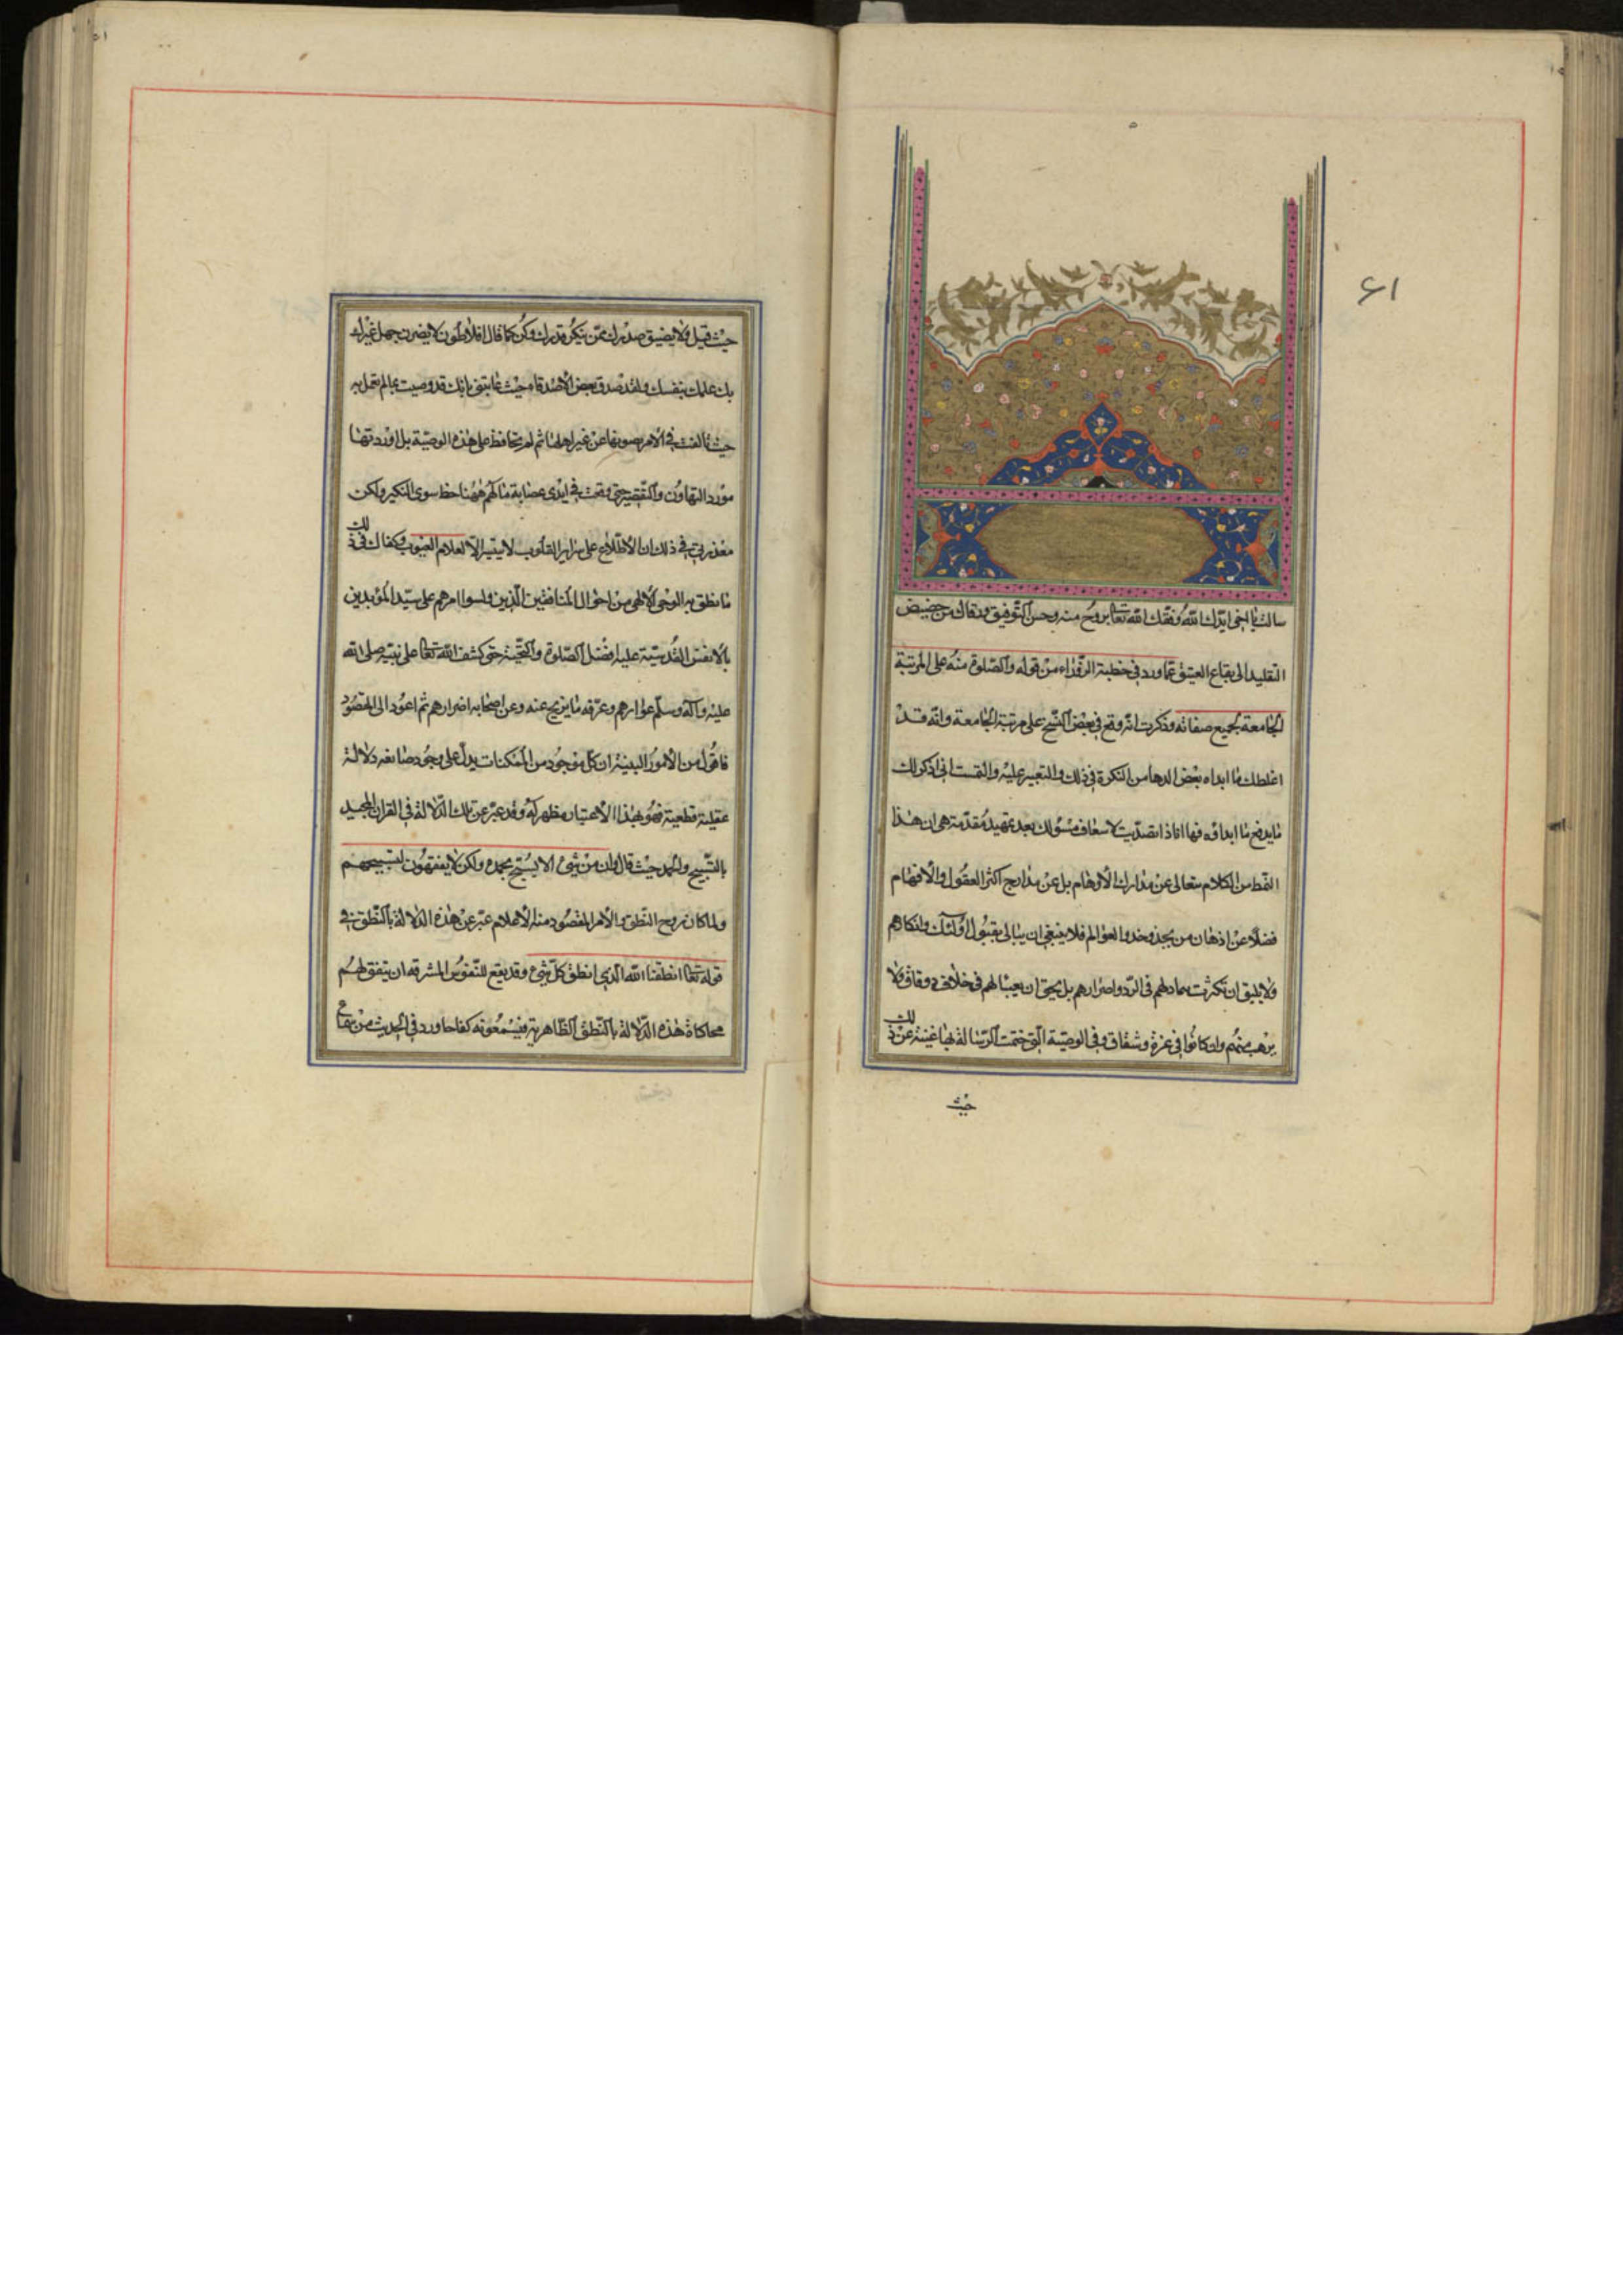 ۶۱
سالت یا اخی ایدک الله وفقک الله تعا بروح منه وحسن التوفیق ورقاک من حضیض
التقلید الی یفاع العیتق عما ورد فی خطبة الزوراء من قوله والصلوة منه علی المرتبة
الجامعة لجمیع صفاته وذکرت انه وقع فی بعض النسخ علی مرتبة الجامعة وانه قد
اغلطک ما ابداه بعض الدها من النکرة فی ذلک والتعییر علیه والتمست انی اذکر لک
ما یدفع ما ابداؤه فها انا ذا تصدیت لاسعاف مسؤلک بعد تمهید مقدمة هی ان هذا
النمط من الکلام متعالی عن مدارک الاوهام بل عن مدارج اکثر العقول والافهام
فضلا عن اذهان من یحذو حذو العوالم فلا ینبغی ان یبالی بقبول اولئک وانکارهم
ولا یلیق ان تکترث بتمادیهم فی الرد واصرارهم بل یحق ان یعبا لهم فی خلاف و وفاق ولا
یرهب منهم وان کانوا فی عزة وشقاق وفی الوصیة التی ختمت الرسالة بها غنیة عن ذلک
حیث
حیث قیل ولا یضیق صدرک ممن ینکر قدرک وکن کما قال افلاطون لا یضرن جهل غیرک
بک علمک بنفسک ولقد صدق بعض الاصدقاء حیث عاتبنی بانک قد وصیت بمالم تعمل به
حیث بالغت فی الامر بصونها عن غیر اهلها ثم لم تحافظ علی هذه الوصیة بل اوردتها
مورد التهاون والتقصیر حتی وقعت فی ایدی عصابة ما لهم ههنا حظ سوی النکیر ولکن
معذرتی فی ذلک ان الاطلاع علی سرایر القلوب لا یتیسر الا لعلام الغیوب وکفاک فی ذلک
ما نطق به الوحی الالهی من احوال المنافقین الذین ولسوا امرهم علی سید المؤیدین
بالانفس القدسیة علیه افضل الصلوة والتحیة حتی کشف الله تعا علی نبیه صلی الله
علیه وآله وسلم عوارهم وعرفه ما یزیح عنه وعن اصحابه اضرارهم ثم اعود الی المقصود
فاقول من الامور البینة ان کل موجود من الممکنات یدل علی وجود صانعه دلالة
عقلیة قطعیة فهو بهذا الاعتبار مظهر له وقد عبر عن تلک الدلالة فی القران المجید
بالتسبیح والحمد حیث قال وان من شیء الا یسبح بحمده ولکن لا یفقهون تسبیحهم
ولما کان روح النطق والامر المقصود منه الاعلام عبر عن هذه الدلالة بالنطق فی
قوله تعا انطقنا الله الذی انطق کل شیء وقد یقع للنفوس المشرقة ان یتفق لهم
محاکاة هذه الدلالة بالنطق الظاهریة فیسمعونه کفاحا ورد فی الحدیث من سماع